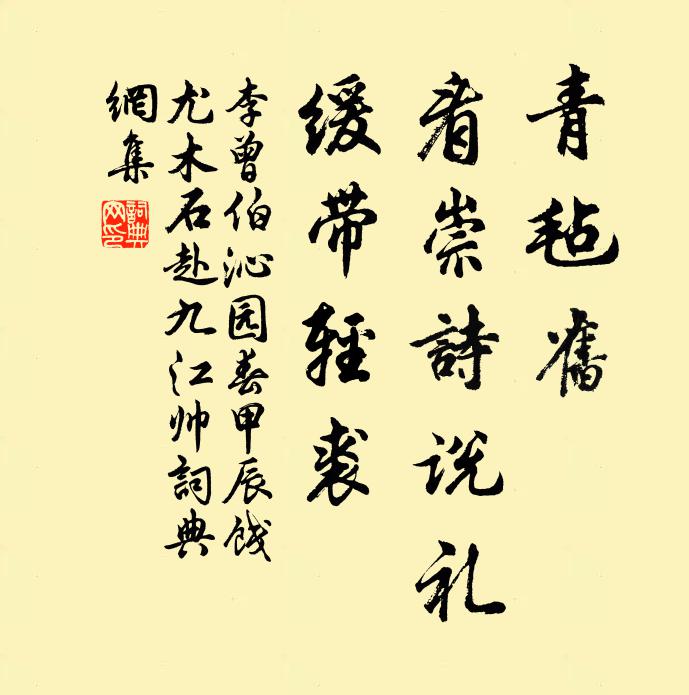 青毡舊
看崇詩说礼
缓带輕裘
李曾伯沁园春甲辰饯
尤木石赴九江帅詞典
網集
詞典
网印